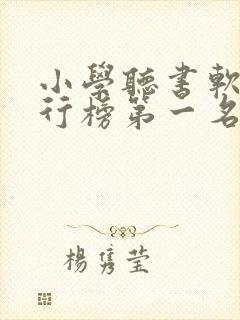 小學聽書軟
行榜第一名
楊雋瑩